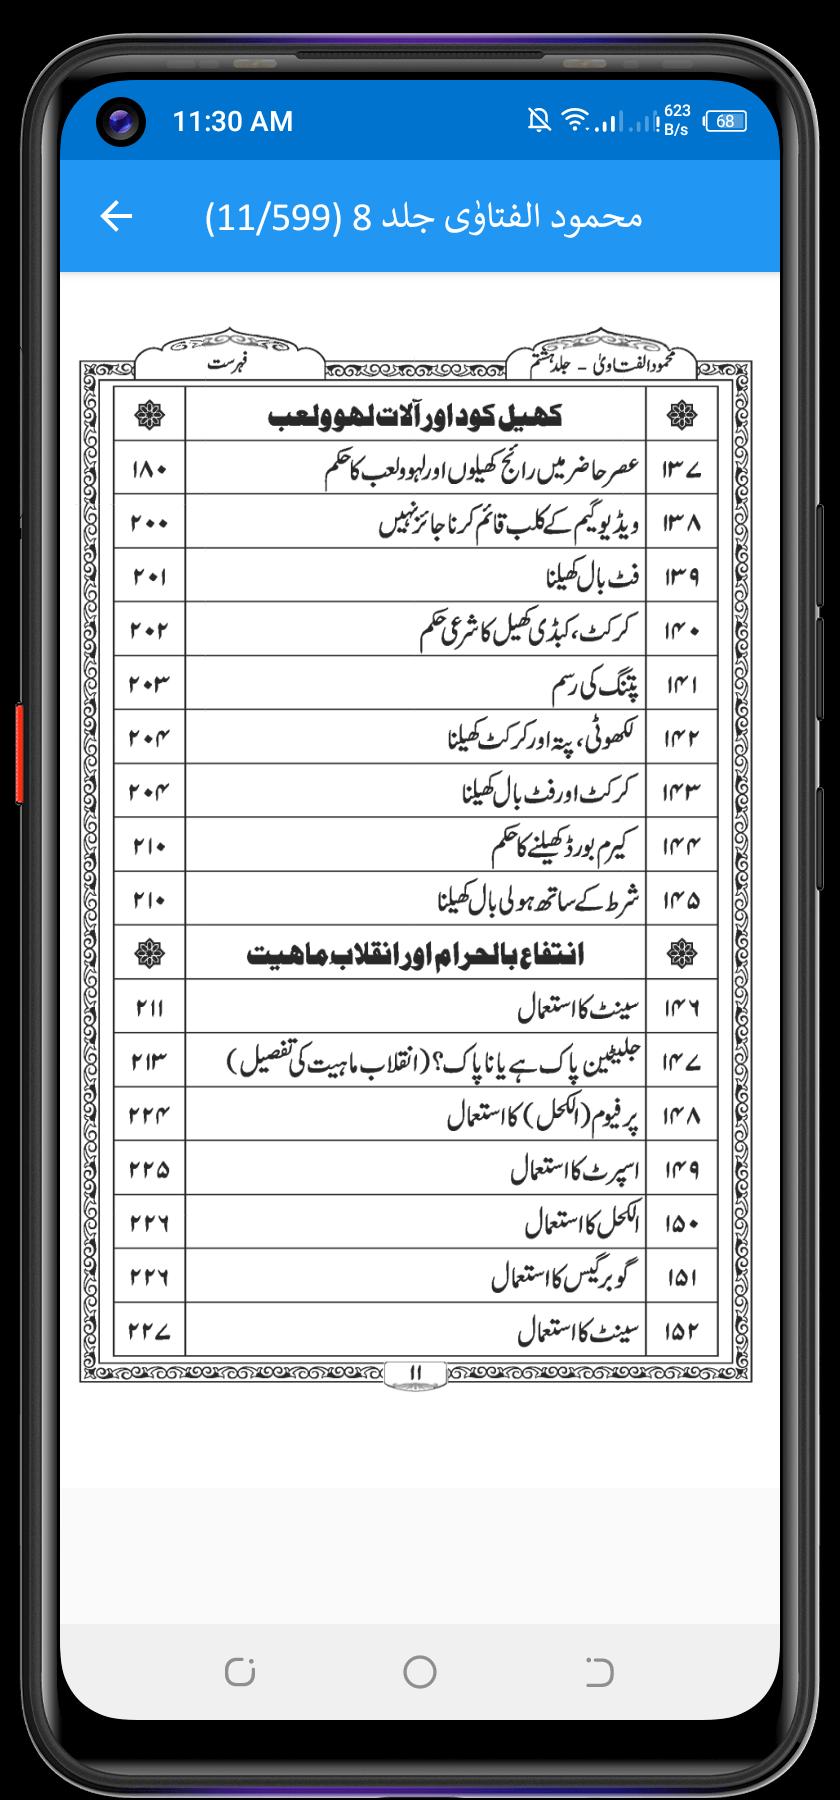 11:30 AM
623 B/s
68
محمود الفتاوٰی جلد 8 (11/599)
محمود الفتاویٰ - جلد ہشتم
فہرست
کھیل کود اور آلات لھو ولعب
۱۳۷ عصر حاضر میں رائج کھیلوں اور لہو ولعب کا حکم ۱۸۰
۱۳۸ ویڈیو گیم کے کلب قائم کرنا جائز نہیں ۲۰۰
۱۳۹ فٹ بال کھیلنا ۲۰۱
۱۴۰ کرکٹ، کبڈی کھیل کا شرعی حکم ۲۰۲
۱۴۱ پتنگ کی رسم ۲۰۳
۱۴۲ لکھوٹی، پتہ اور کرکٹ کھیلنا ۲۰۴
۱۴۳ کرکٹ اور فٹ بال کھیلنا ۲۰۴
۱۴۴ کیرم بورڈ کھیلنے کا حکم ۲۱۰
۱۴۵ شرط کے ساتھ ہولی بال کھیلنا ۲۱۰
انتفاع بالحرام اور انقلاب ماھیت
۱۴۶ سینٹ کا استعمال ۲۱۱
۱۴۷ جلیٹین پاک ہے یا ناپاک؟ (انقلاب ماہیت کی تفصیل) ۲۱۳
۱۴۸ پرفیوم (الکحل) کا استعمال ۲۲۴
۱۴۹ اسپرٹ کا استعمال ۲۲۵
۱۵۰ الکحل کا استعمال ۲۲۶
۱۵۱ گوبر گیس کا استعمال ۲۲۶
۱۵۲ سینٹ کا استعمال ۲۲۷
۱۱